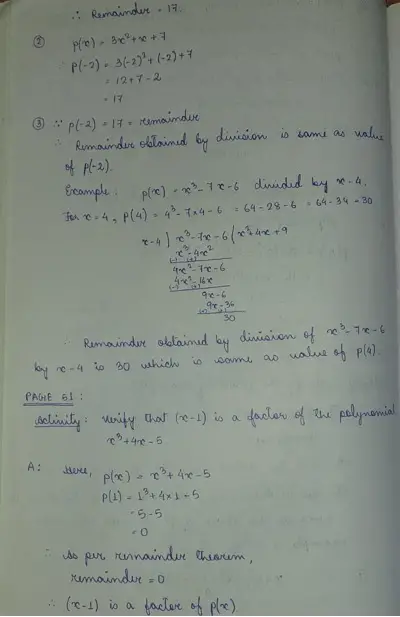 ∴ Remainder = 17.
② p(x) = 3x²+x+7
p(-2) = 3(-2)²+(-2)+7
= 12+7-2
= 17
③ ∵ p(-2) = 17 = remainder
∴ Remainder obtained by division is same as value
of p(-2).
Example: p(x) = x³-7x-6 divided by x-4.
For x=4, p(4) = 4³-7×4-6 = 64-28-6 = 64-34 = 30
x-4 ) x³-7x-6 ( x²+4x+9
x³-4x²
(-) (+)
4x²-7x-6
4x²-16x
(-) (+)
9x-6
9x-36
(-) (+)
30
∴ Remainder obtained by division of x³-7x-6
by x-4 is 30 which is same as value of p(4).
PAGE 51:
Activity: Verify that (x-1) is a factor of the polynomial
x³+4x-5
A: Here, p(x) = x³+4x-5
p(1) = 1³+4×1-5
= 5-5
= 0
∴ As per remainder theorem,
remainder = 0
∴ (x-1) is a factor of p(x)